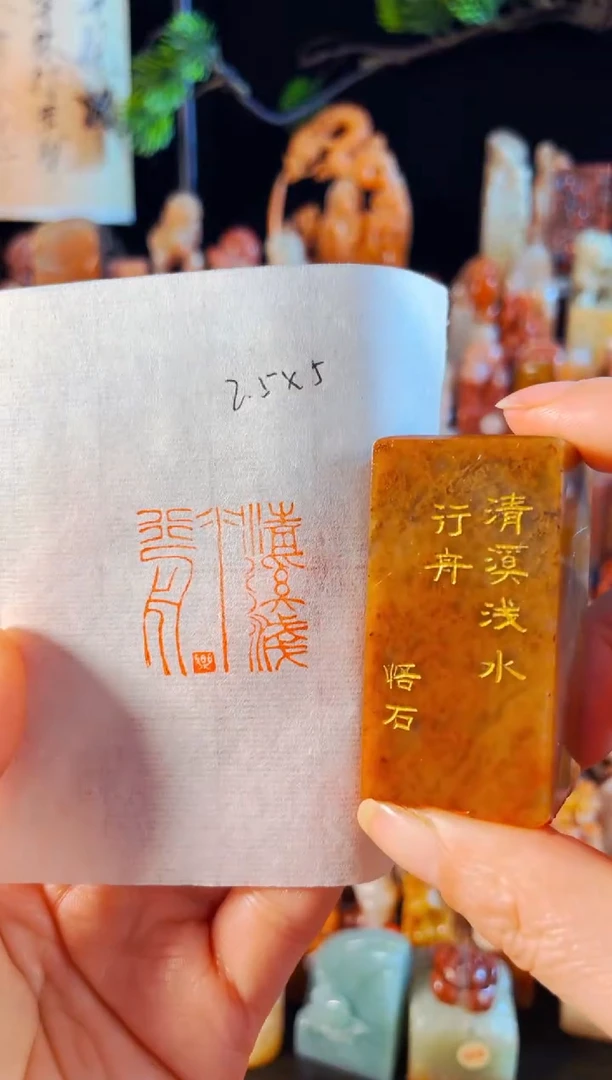 2.5×5
清溪浅
水
行舟
清溪浅水
行舟
悟石